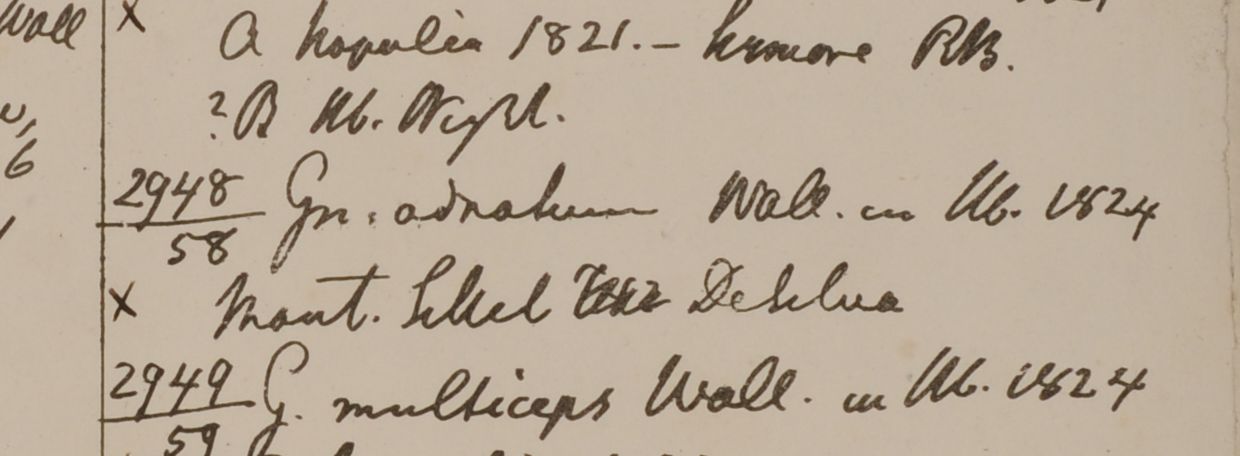 Wall x
a Napalia 1821. – Kumaon RB.
? B Hb. Wight.
2948 Gn. adnatum Wall. in Hb. 1824
58
x Mont. Sillet De Silva
2949 G. multiceps Wall. in Hb. 1824
59